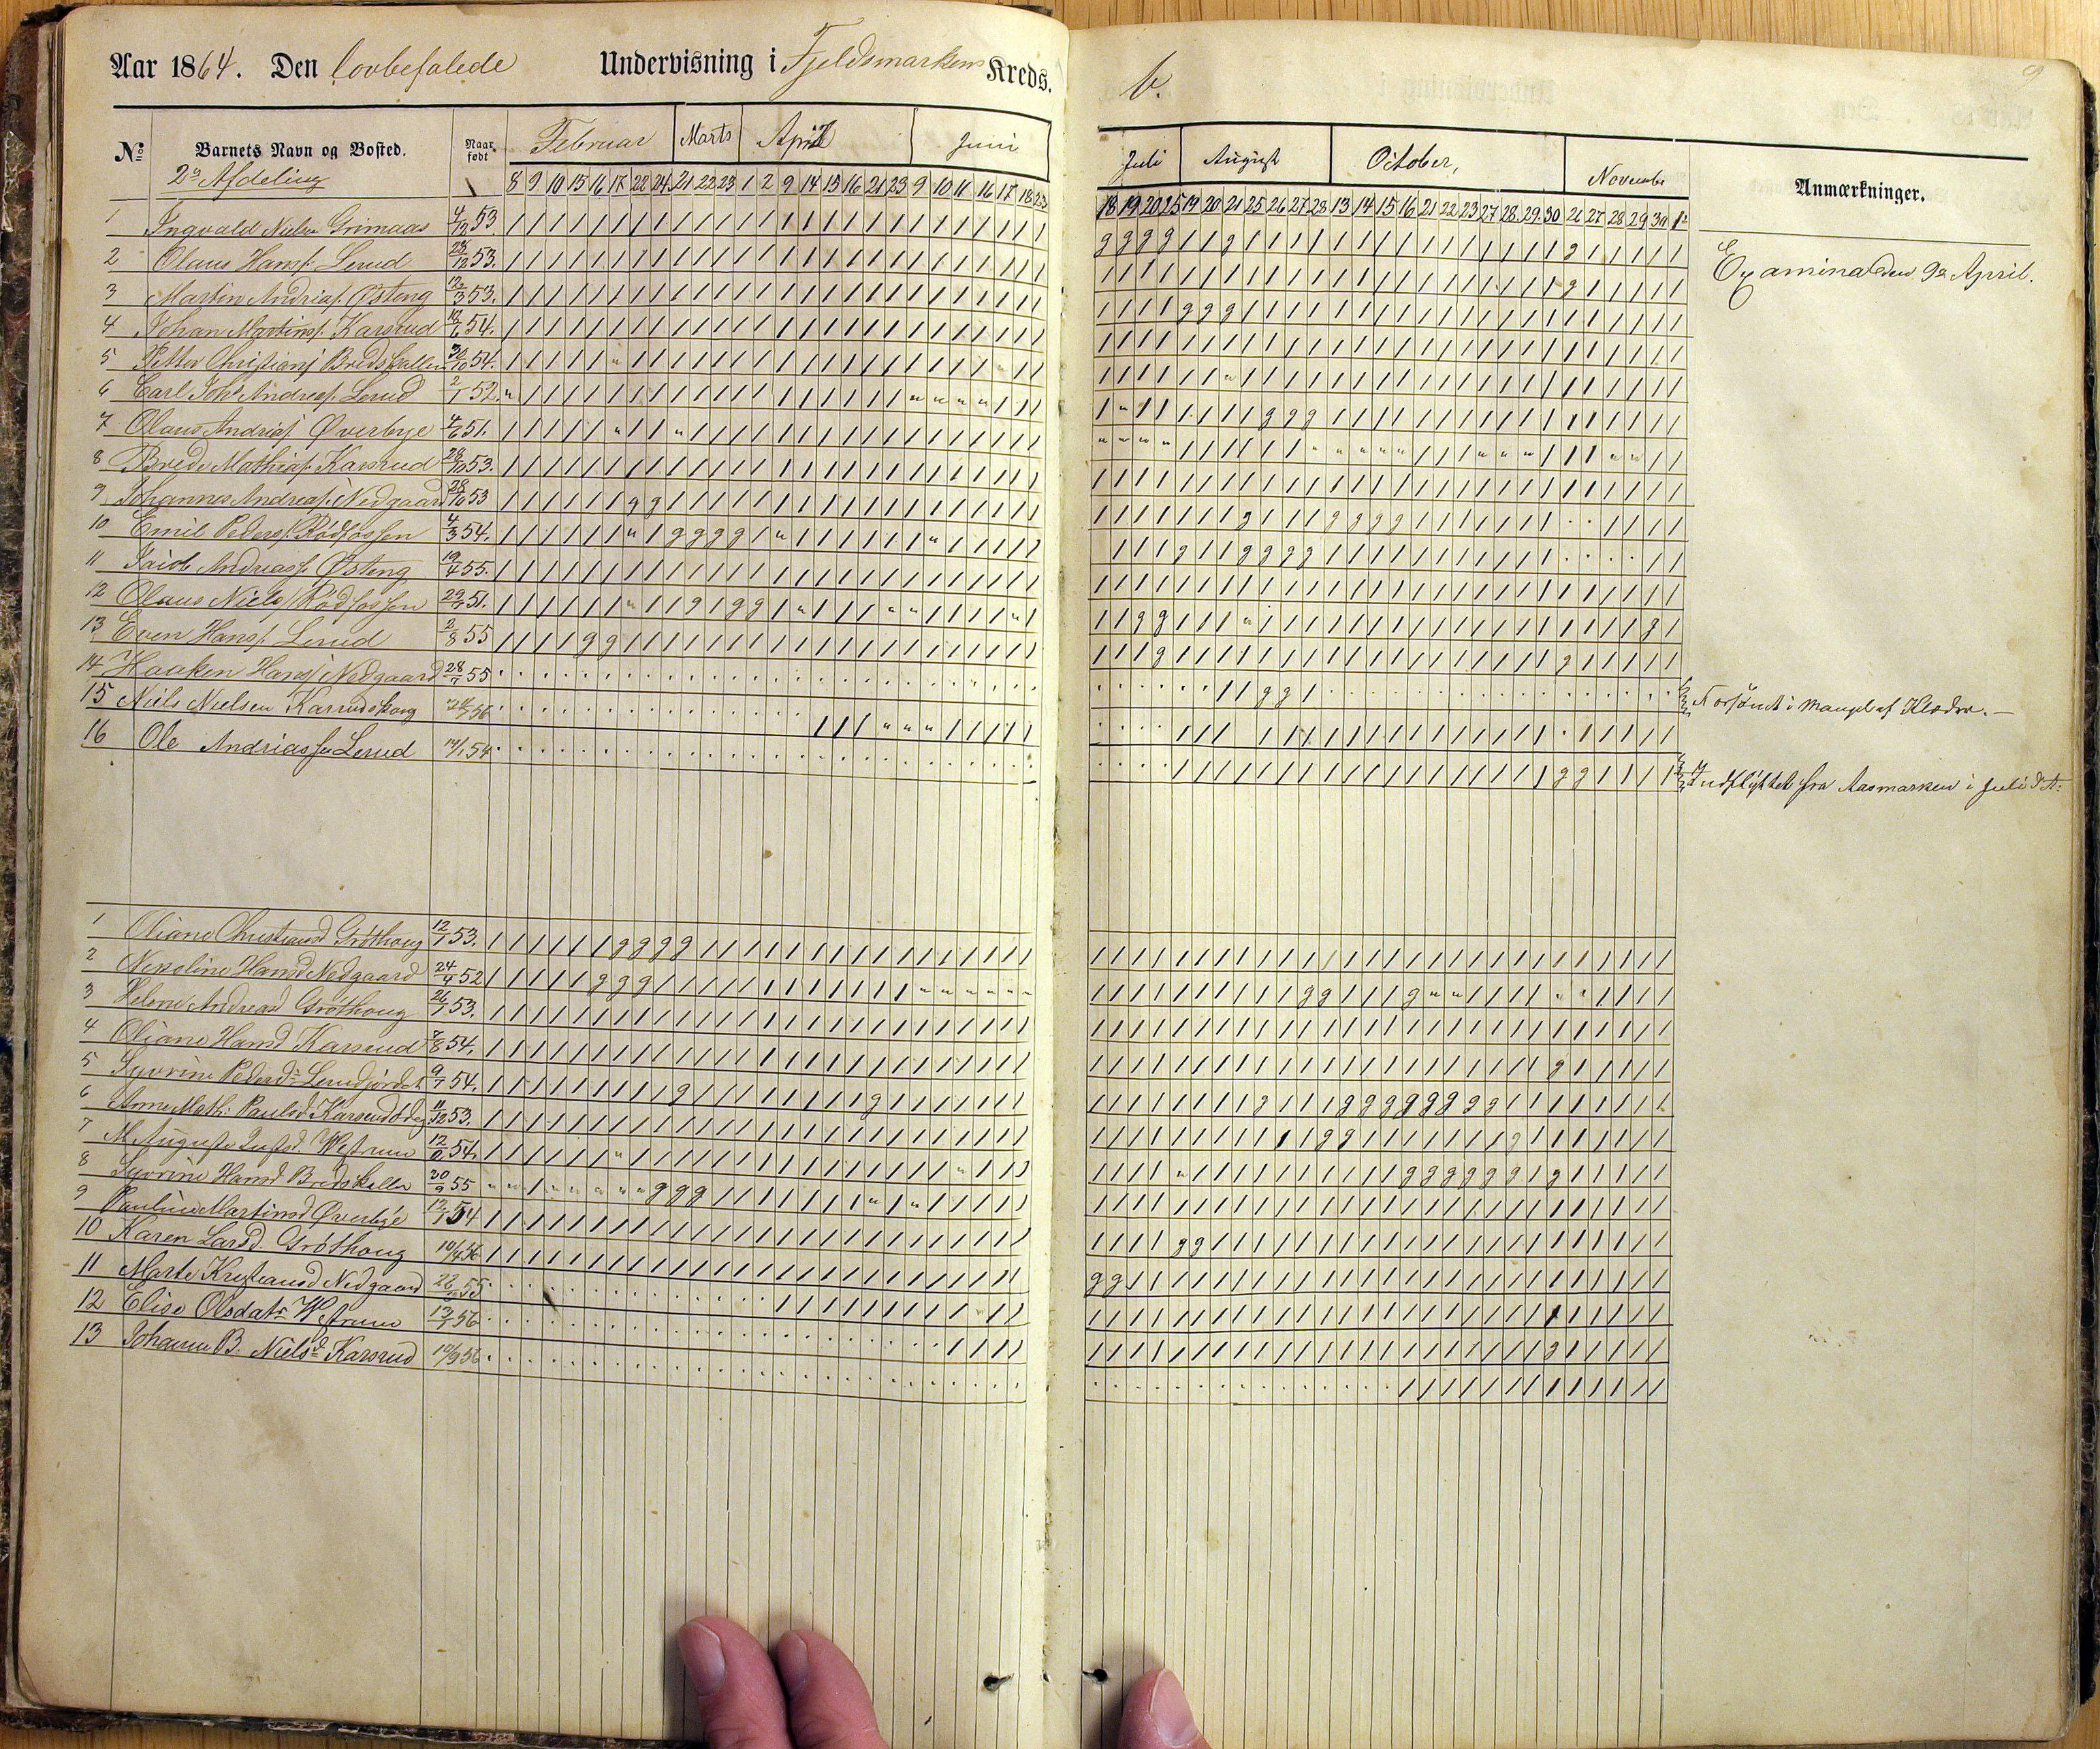 Aar 1864. Den lovbefalede Undervisning i Fjeldsmarkens Kreds.
No Barnets Navn og Bosted. Naar født Februar Marts April Juni
2n Afdeling 8 9 10 15 16 17 22 24 21 22 23 1 2 9 14 15 16 21 23 9 10 11 16 17 18 23
1 Ingvald Nielsen Grimaas 4/12 53.
2 Olaus Hans. Lerud 28/12 53.
3 Martin Andrias. Østeng 12/3 53.
4 Johan Martins. Karsrud 54.
5 Petter Christians. Bredshallen 30/10 54.
6 Carl Joh. Andreas. Lerud 2/1 52.
7 Olaus Andrias. Øverbye 4/6 51.
8 Brede Mathias. Karsrud 28/10 53.
9 Johannes Andreas. Nedgaard 28/10 53
10 Emil Peders. Rødfossen 4/3 54.
11 Jacob Andreass. Østeng 19/4 55.
12 Olaus Niels. Rødfossen 29/7 51.
13 Even Hans. Lerud 2/8 55
14 Haaken Hans. Nedgaard 28/7 55
15 Niels Nielsen Karsrudskoug 56
16 Ole Andriassen Lerud 14/1 54
1 Oliane Christiansd Grøthoug 12/7 53.
2 Nikoline Hansd Nedgaard 24/4 52
3 Helene Andreasd Grøthoug 26/7 53.
4 Oliane Hansd Karsrud 54.
5 Syvrine Pedersd. Lerudjordet 9/7 54.
6 Anne Math: Paulsd Karsrudødeg 11/12 53.
7 M. Auguste Westrum 54.
8 Syvrine Hansd Bredshallen 30/9 55
9 Pauline Martinsd Øverbye 54
10 Karen Larsd. Grøthoug 10/4 56
11 Marte Kristiansd Nedgaard 55
12 Elise Olsdatr Westrum 56
13 Johanne B. Nielsd Karsrud 10/9 56
b.
9
Juli August October, November Anmærkninger.
18 19 20 25 19 20 21 25 26 27 28 13 14 15 16 21 22 23 27 28 29 30 26 27 28 29 30 1
Examina den 9e April.
Forsømt i Mangel af Klæder.
Indflyttet fra Aasmarken i Juli d. A: